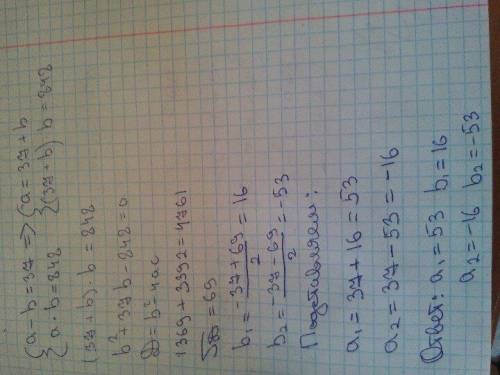 {a-b=37 => {a=37+b
{a·b=848 {(37+b) b=848
(37+b)·b=848
b²+37b-848=0
D=b²-4ac
1369+3392=4761
√D=69
b₁=37+69/2=16
b₂=37-69/2=-53
Подставляем:
a₁=37+16=53
a₂=37-53=-16
Ответ: a₁=53 b₁=16
a₂=-16 b₂=-53